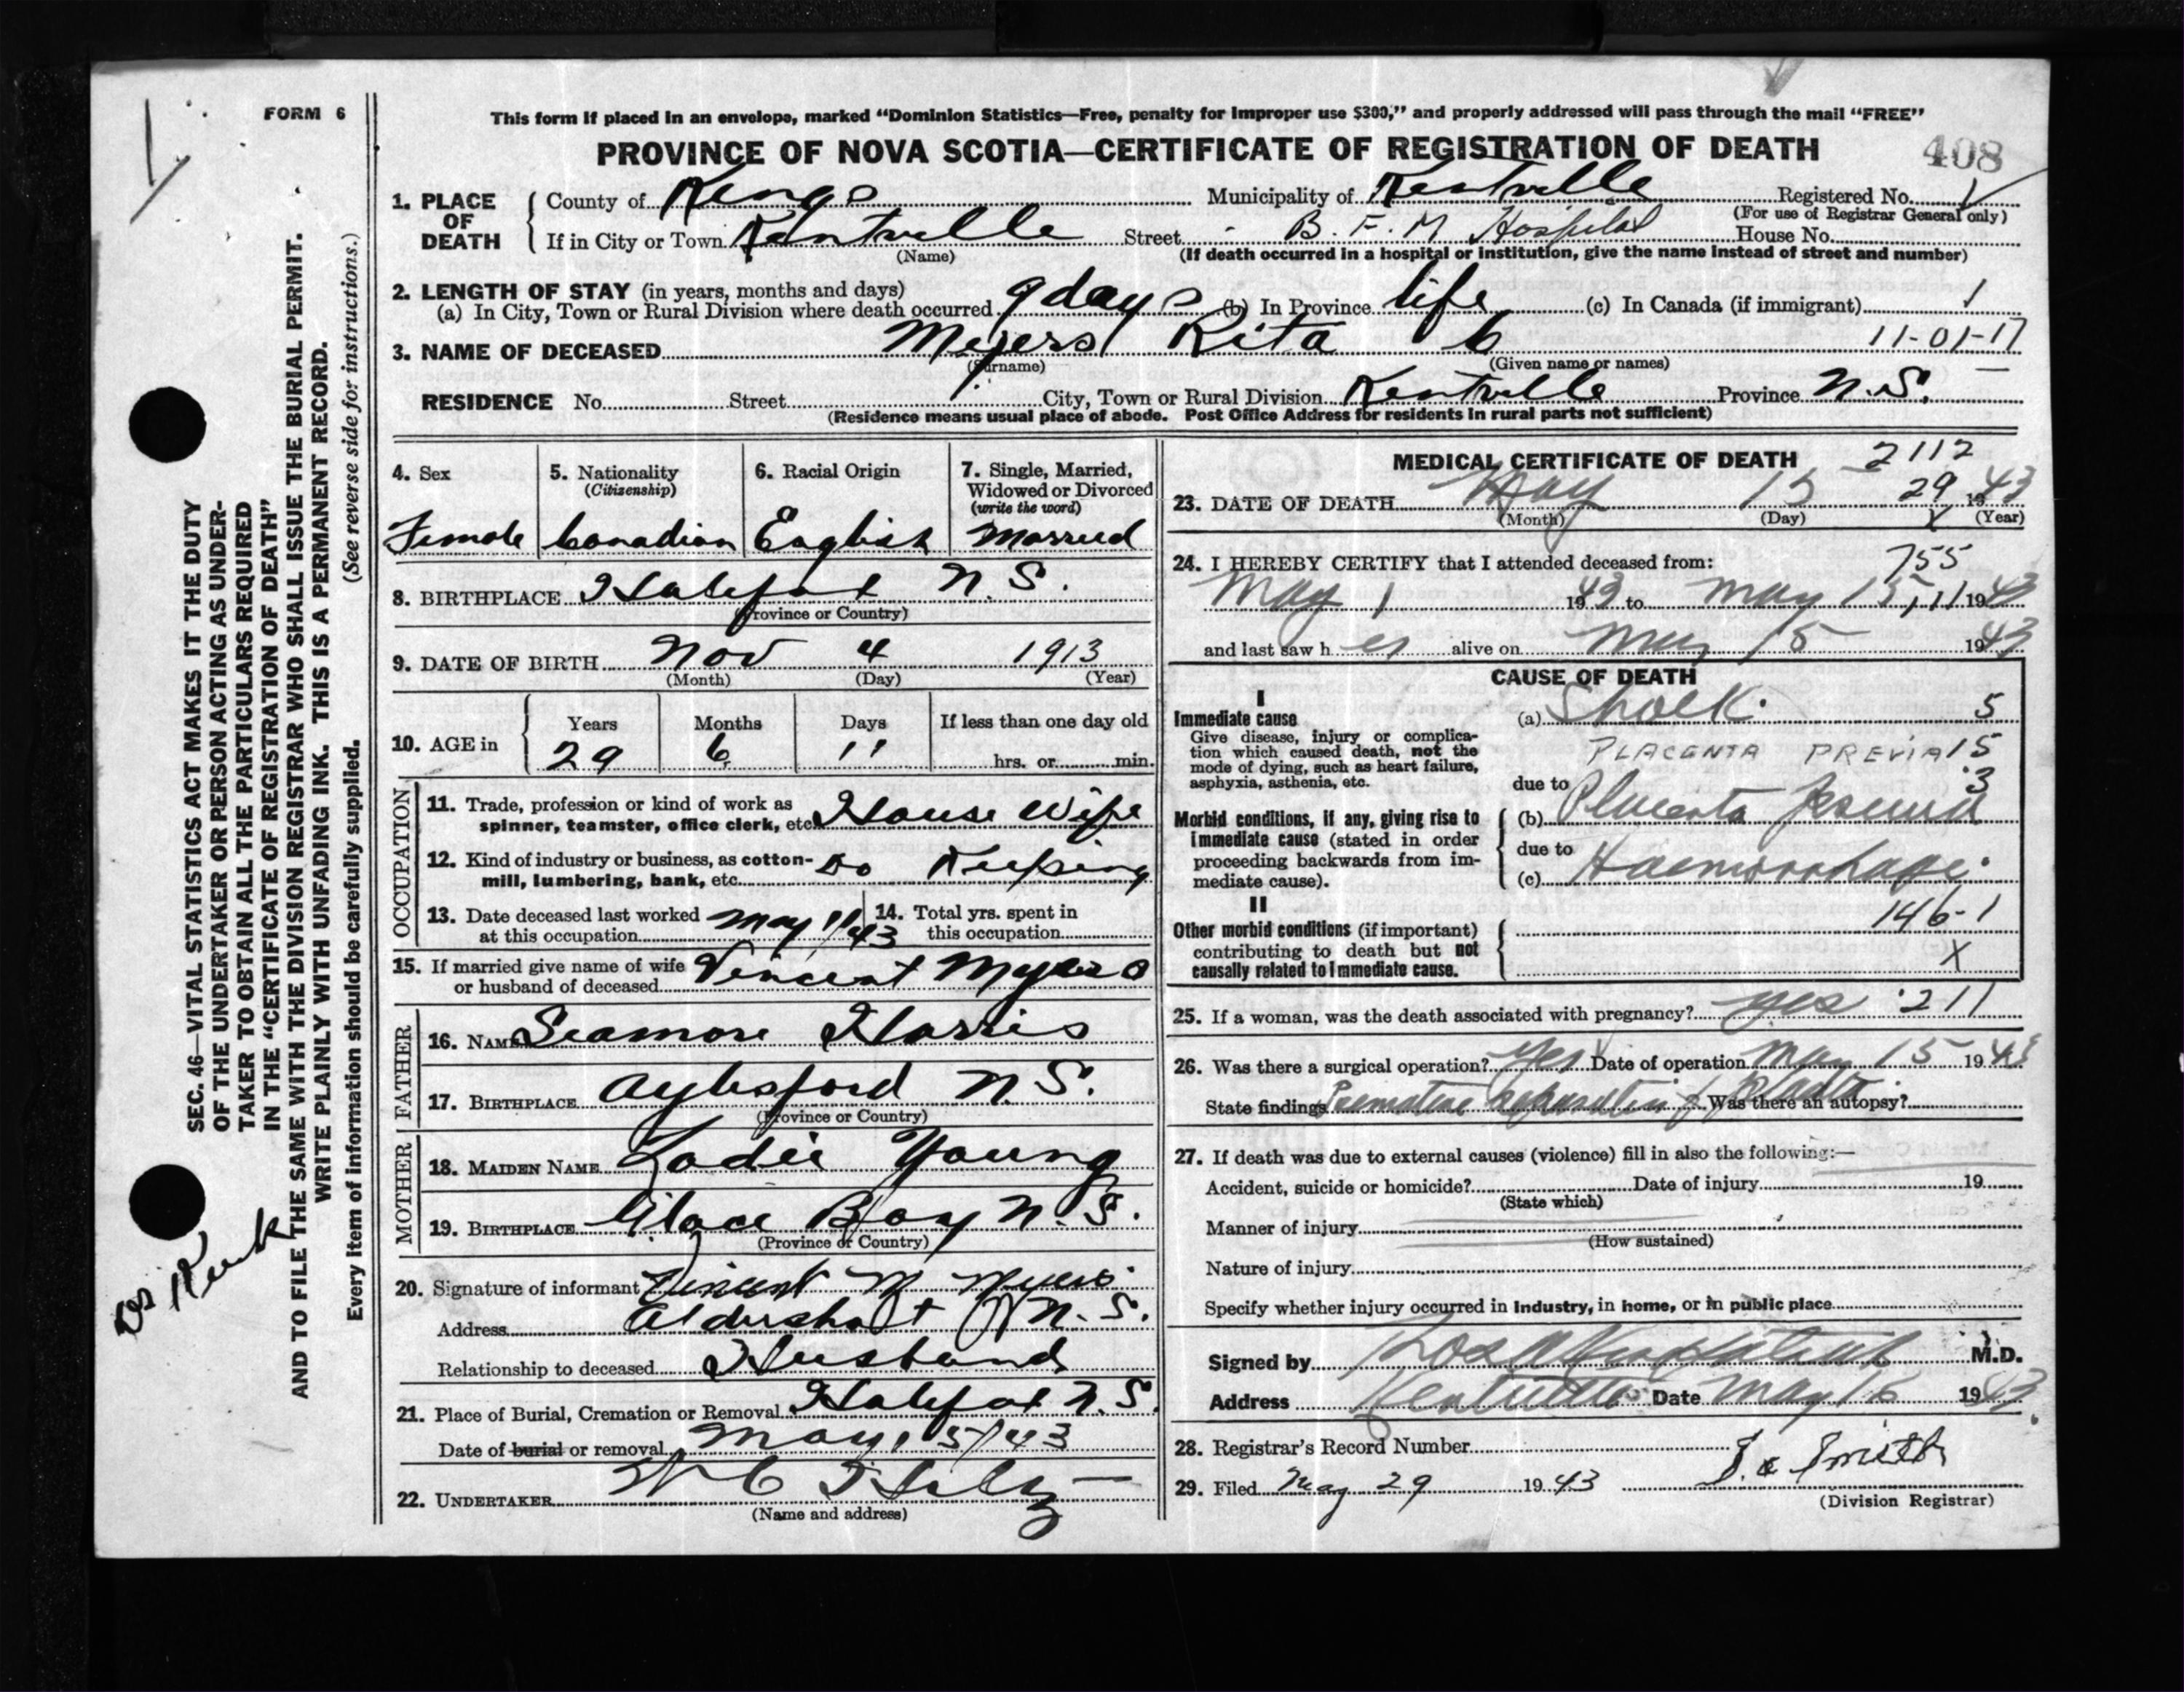 FORM 6
This form if placed in an envelope, marked "Dominion Statistics—Free, penalty for improper use $300," and properly addressed will pass through the mail "FREE"
PROVINCE OF NOVA SCOTIA—CERTIFICATE OF REGISTRATION OF DEATH
408
1. PLACE OF DEATH
County of Kings Municipality of Kentville Registered No.
(For use of Registrar General only)
If in City or Town Kentville Street B. F. M Hospital House No.
(Name) (If death occurred in a hospital or institution, give the name instead of street and number)
2. LENGTH OF STAY (in years, months and days)
(a) In City, Town or Rural Division where death occurred 9 days (b) In Province life (c) In Canada (if immigrant)
3. NAME OF DECEASED Meyers Rita 11-01-17
(Surname) (Given name or names)
RESIDENCE No. Street City, Town or Rural Division Kentville Province N.S.
(Residence means usual place of abode. Post Office Address for residents in rural parts not sufficient)
SEC. 46—VITAL STATISTICS ACT MAKES IT THE DUTY
OF THE UNDERTAKER OR PERSON ACTING AS UNDER-
TAKER TO OBTAIN ALL THE PARTICULARS REQUIRED
IN THE "CERTIFICATE OF REGISTRATION OF DEATH"
AND TO FILE THE SAME WITH THE DIVISION REGISTRAR WHO SHALL ISSUE THE BURIAL PERMIT.
WRITE PLAINLY WITH UNFADING INK. THIS IS A PERMANENT RECORD.
Every item of information should be carefully supplied. (See reverse side for instructions.)
4. Sex
Female
5. Nationality
(Citizenship)
Canadian
6. Racial Origin
English
7. Single, Married,
Widowed or Divorced
(write the word)
Married
8. BIRTHPLACE Halifax N.S.
(Province or Country)
9. DATE OF BIRTH Nov 4 1913
(Month) (Day) (Year)
10. AGE in
Years Months Days If less than one day old
29 6 11 hrs. or min.
OCCUPATION
11. Trade, profession or kind of work as
spinner, teamster, office clerk, etc. House Wife
12. Kind of industry or business, as cotton-
mill, lumbering, bank, etc. Do Keeping
13. Date deceased last worked
at this occupation May 1/43
14. Total yrs. spent in
this occupation
15. If married give name of wife
or husband of deceased Vincent Myers
FATHER
16. NAME Seamore Harris
17. BIRTHPLACE Aylesford N.S.
(Province or Country)
MOTHER
18. MAIDEN NAME Young
19. BIRTHPLACE Glace Bay N.S.
(Province or Country)
20. Signature of informant Vincent M Myers
Address Aldershot N.S.
Relationship to deceased Husband
21. Place of Burial, Cremation or Removal Halifax N.S.
Date of burial or removal May 15/43
22. UNDERTAKER
(Name and address)
MEDICAL CERTIFICATE OF DEATH 2112
23. DATE OF DEATH May 15 29 1943
(Month) (Day) (Year)
24. I HEREBY CERTIFY that I attended deceased from: 755
May 1 1943 to May 15 1943
and last saw h er alive on May 15 1943
CAUSE OF DEATH
I
Immediate cause
Give disease, injury or complica-
tion which caused death, not the
mode of dying, such as heart failure,
asphyxia, asthenia, etc.
(a) Shock 5
PLACENTA PREVIA 15
due to 3
Morbid conditions, if any, giving rise to
immediate cause (stated in order
proceeding backwards from im-
mediate cause).
(b) Placenta
due to
(c) Haemorrhage
II
Other morbid conditions (if important)
contributing to death but not
causally related to immediate cause.
146-1
X
25. If a woman, was the death associated with pregnancy? yes 211
26. Was there a surgical operation? Yes Date of operation May 15 1943
State findings Premature separation of Was there an autopsy?
27. If death was due to external causes (violence) fill in also the following:—
Accident, suicide or homicide? Date of injury 19
(State which)
Manner of injury
(How sustained)
Nature of injury
Specify whether injury occurred in Industry, in home, or in public place
Signed by M.D.
Address Kentville Date May 16 1943
28. Registrar's Record Number
29. Filed May 29 1943
(Division Registrar)